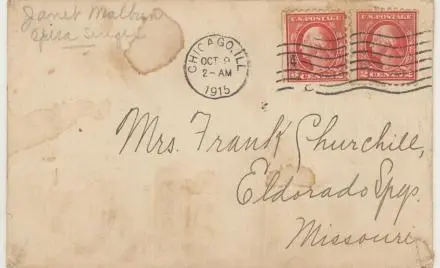 Janet Malbun
Opera Singer
CHICAGO, ILL.
OCT 9
2-AM
1915
U.S. POSTAGE
2 CENTS 2
U.S. POSTAGE
2 CENTS 2
Mrs. Frank Churchill,
Eldorado Spgs.
Missouri